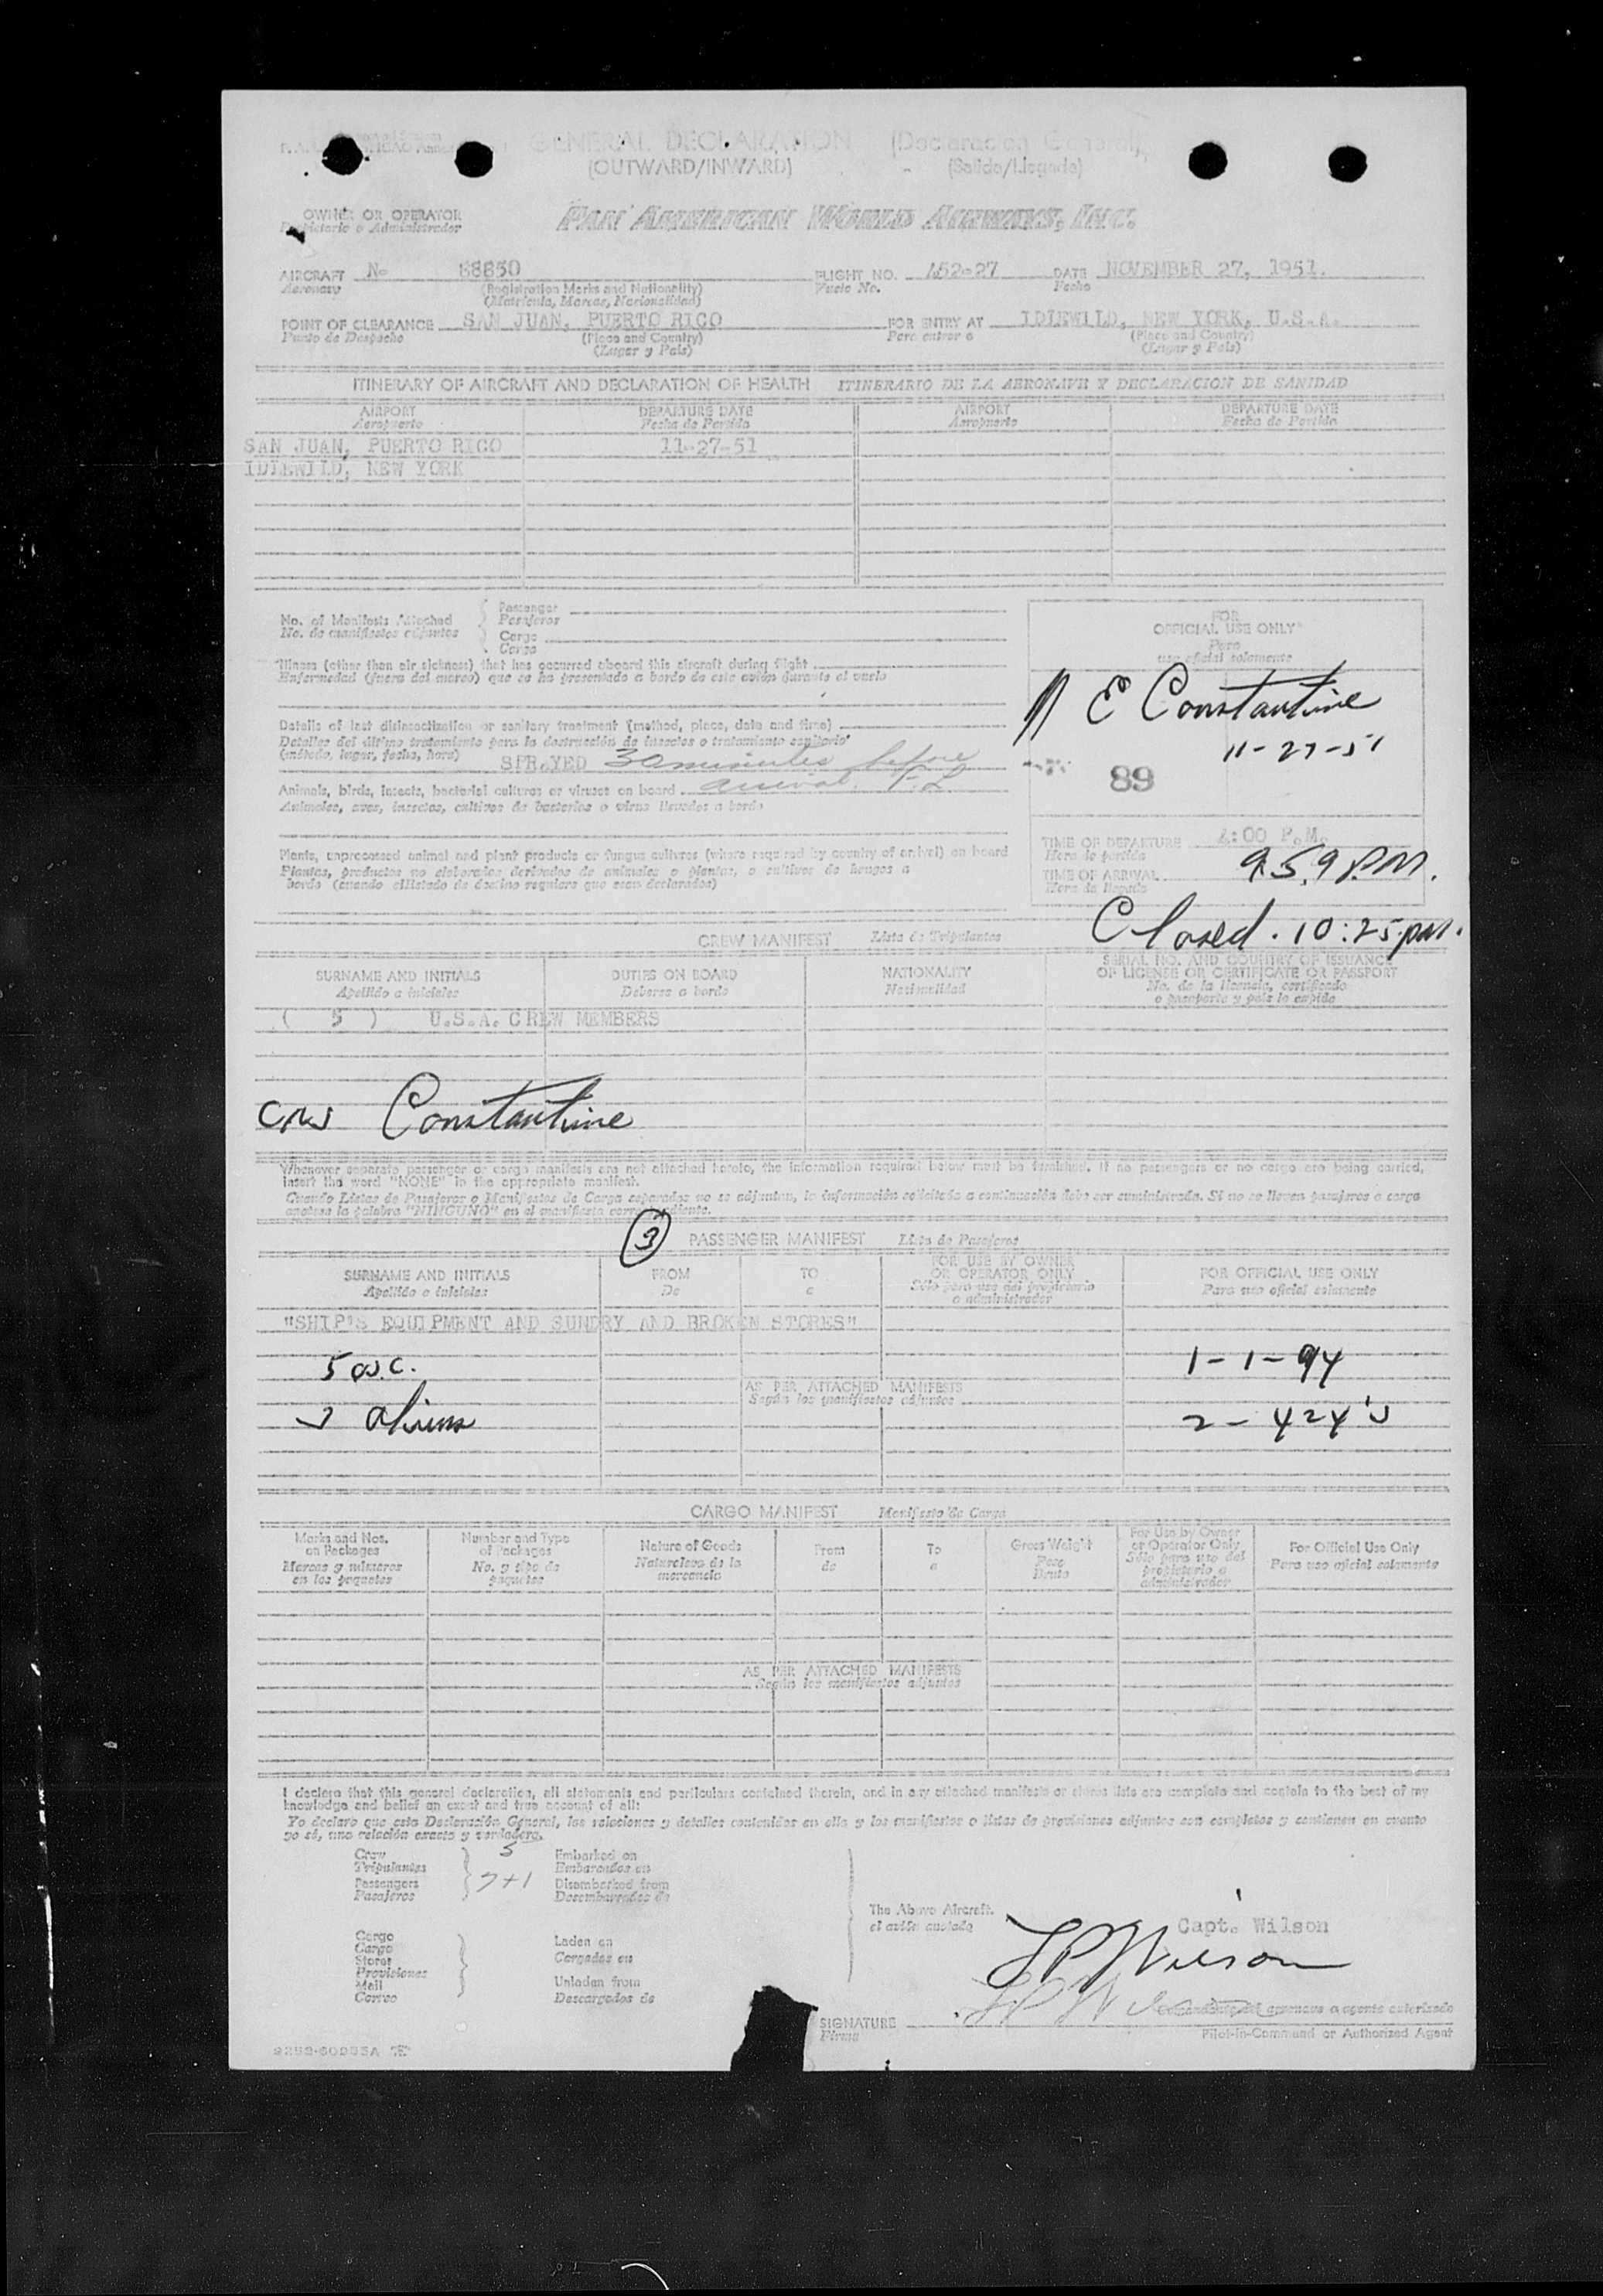 GENERAL DECLARATION (Declaracion General)
(OUTWARD/INWARD) - (Salida/Llegada)
OWNER OR OPERATOR
Propietario o Administrador
PAN AMERICAN WORLD AIRWAYS, INC.
AIRCRAFT N- 88830 FLIGHT NO. 152-27 DATE NOVEMBER 27, 1951.
Aeronave (Registration Marks and Nationality) Vuelo No. Fecha
(Matricula, Marcas, Nacionalidad)
POINT OF CLEARANCE SAN JUAN, PUERTO RICO FOR ENTRY AT IDLEWILD, NEW YORK, U.S.A.
Punto de Despacho (Place and Country) Para entrar a (Place and Country)
(Lugar y Pais) (Lugar y Pais)
ITINERARY OF AIRCRAFT AND DECLARATION OF HEALTH ITINERARIO DE LA AERONAVE Y DECLARACION DE SANIDAD
AIRPORT DEPARTURE DATE AIRPORT DEPARTURE DATE
Aeropuerto Fecha de Partida Aeropuerto Fecha de Partida
SAN JUAN, PUERTO RICO 11-27-51
IDLEWILD, NEW YORK
No. of Manifests Attached Passenger
No. de manifiestos adjuntos Pasajeros
Cargo
Carga
FOR
OFFICIAL USE ONLY
Para
uso oficial solamente
Illness (other than air sickness) that has occurred aboard this aircraft during flight
Enfermedad (fuera del mareo) que se ha presentado a bordo de este avión durante el vuelo
N E Constantine
11-27-51
89
Details of last disinsectization or sanitary treatment (method, place, date and time)
Detalles del último tratamiento para la destrucción de insectos o tratamiento sanitario
(método, lugar, fecha, hora) SPRAYED 30 minutes before
Animals, birds, insects, bacterial cultures or viruses on board arrival.
Animales, aves, insectos, cultivos de bacterias o virus llevados a bordo
Plants, unprocessed animal and plant products or fungus cultures (where required by country of arrival) on board
Plantas, productos no elaborados derivados de animales o plantas, o cultivos de hongos a
bordo (cuando el Estado de destino requiera que sean declarados)
TIME OF DEPARTURE :00 P.M.
Hora de partida
TIME OF ARRIVAL 9.59 P.M.
Hora de llegada
Closed. 10:25 pm.
CREW MANIFEST Lista de Tripulantes
SURNAME AND INITIALS DUTIES ON BOARD NATIONALITY SERIAL NO. AND COUNTRY OF ISSUANCE
OF LICENSE OR CERTIFICATE OR PASSPORT
Apellido e iniciales Deberes a bordo Nacionalidad No. de la licencia, certificado
o pasaporte y país lo expide
( 5 ) U.S.A. CREW MEMBERS
Constantine
Whenever separate passenger or cargo manifests are not attached hereto, the information required below must be furnished. If no passengers or no cargo are being carried,
insert the word "NONE" in the appropriate manifest.
Cuando Listas de Pasajeros o Manifiestos de Carga separados no se adjuntan, la información solicitada a continuación debe ser suministrada. Si no se llevan pasajeros o carga
anótese la palabra "NINGUNO" en el manifiesto correspondiente.
3 PASSENGER MANIFEST Lista de Pasajeros
SURNAME AND INITIALS FROM TO FOR USE BY OWNER
OR OPERATOR ONLY FOR OFFICIAL USE ONLY
Apellido e iniciales De a Sólo para uso del propietario
o administrador Para uso oficial solamente
"SHIP'S EQUIPMENT AND SUNDRY AND BROKEN STORES"
5 1-1-94
AS PER ATTACHED MANIFESTS
Según los manifiestos adjuntos
aliens 2-424's
CARGO MANIFEST Manifiesto de Carga
Marks and Nos.
on Packages
Marcas y números
en los paquetes
Number and Type
of Packages
No. y tipo de
paquetes
Nature of Goods
Naturaleza de la
mercancia
From
de
To
a
Gross Weight
Peso
Bruto
For Use by Owner
or Operator Only
Sólo para uso del
propietario o
administrador
For Official Use Only
Para uso oficial solamente
AS PER ATTACHED MANIFESTS
Según los manifiestos adjuntos
I declare that this general declaration, all statements and particulars contained therein, and in any attached manifests or stores lists are complete and contain to the best of my
knowledge and belief an exact and true account of all:
Yo declaro que esta Declaración General, las relaciones y detalles contenidos en ella y los manifiestos o listas de provisiones adjuntos son completos y contienen en cuanto
yo sé, una relación exacta y verdadera.
Crew 5 Embarked on
Tripulantes Embarcados en
Passengers 7+1 Disembarked from
Pasajeros Desembarcados de
The Above Aircraft.
el avión anotado
Capt. Wilson
Cargo
Carga Laden on
Stores Cargados en
Provisiones
Mail Unladen from
Correo Descargados de
LPWilson
LPWilson
SIGNATURE
Firma
Comandante del aeronave o agente autorizado
Pilot-in-Command or Authorized Agent